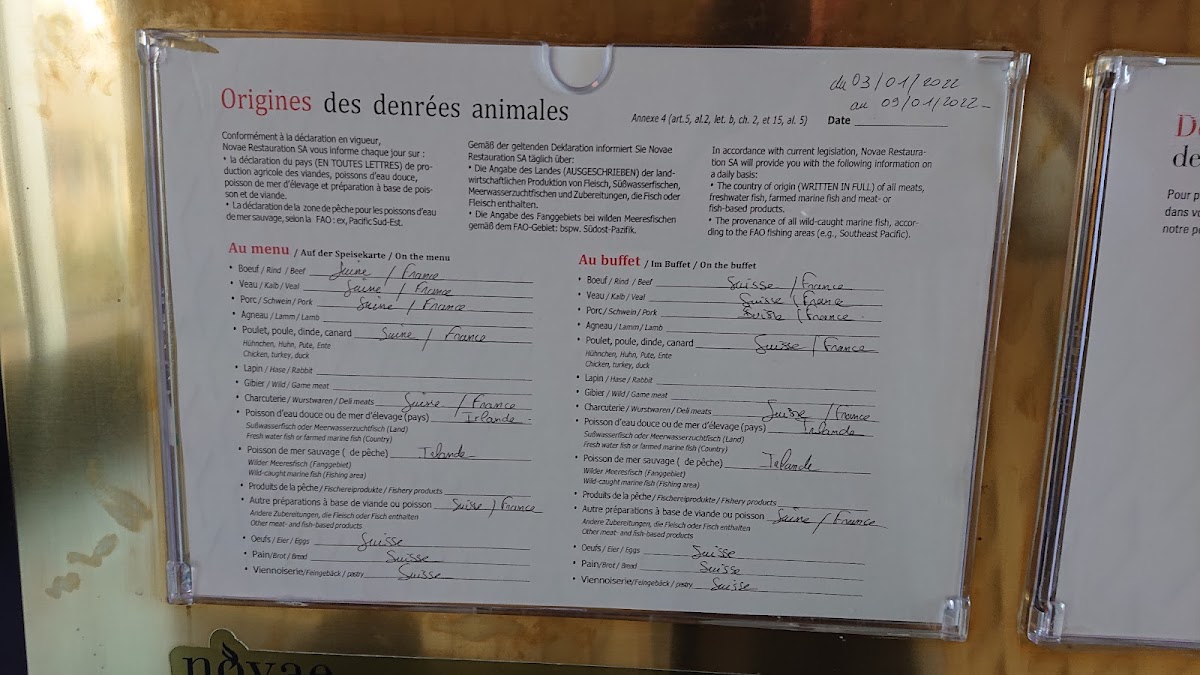 du 03/01/2022
au 09/01/2022-
Origines des denrées animales
Annexe 4 (art.5, al.2, let. b, ch. 2, et 15, al. 5) Date
Conformément à la déclaration en vigueur,
Novae Restauration SA vous informe chaque jour sur :
• la déclaration du pays (EN TOUTES LETTRES) de pro-
duction agricole des viandes, poissons d'eau douce,
poisson de mer d'élevage et préparation à base de pois-
son et de viande.
• La déclaration de la zone de pêche pour les poissons d'eau
de mer sauvage, selon la FAO : ex, Pacific Sud-Est.
Gemäß der geltenden Deklaration informiert Sie Novae
Restauration SA täglich über:
• Die Angabe des Landes (AUSGESCHRIEBEN) der land-
wirtschaftlichen Produktion von Fleisch, Süßwasserfischen,
Meerwasserzuchtfischen und Zubereitungen, die Fisch oder
Fleisch enthalten.
• Die Angabe des Fanggebiets bei wilden Meeresfischen
gemäß dem FAO-Gebiet: bspw. Südost-Pazifik.
In accordance with current legislation, Novae Restaura-
tion SA will provide you with the following information on
a daily basis:
• The country of origin (WRITTEN IN FULL) of all meats,
freshwater fish, farmed marine fish and meat- or
fish-based products.
• The provenance of all wild-caught marine fish, accor-
ding to the FAO fishing areas (e.g., Southeast Pacific).
Au menu / Auf der Speisekarte / On the menu
• Boeuf / Rind / Beef Suisse / France
• Veau / Kalb / Veal Suisse / France
• Porc / Schwein / Pork Suisse / France
• Agneau / Lamm / Lamb
• Poulet, poule, dinde, canard Suisse / France
Hühnchen, Huhn, Pute, Ente
Chicken, turkey, duck
• Lapin / Hase / Rabbit
• Gibier / Wild / Game meat
• Charcuterie / Wurstwaren / Deli meats Suisse / France
• Poisson d'eau douce ou de mer d'élevage (pays) Irlande
Sußwasserfisch oder Meerwasserzuchtfisch (Land)
Fresh water fish or farmed marine fish (Country)
• Poisson de mer sauvage ( de pêche) Irlande
Wilder Meeresfisch (Fanggebiet)
Wild-caught marine fish (Fishing area)
• Produits de la pêche / Fischereiprodukte / Fishery products
• Autre préparations à base de viande ou poisson Suisse / France
Andere Zubereitungen, die Fleisch oder Fisch enthalten
Other meat- and fish-based products
• Oeufs / Eier / Eggs Suisse
• Pain/Brot / Bread Suisse
• Viennoiserie/Feingebäck / pastry Suisse
Au buffet / Im Buffet / On the buffet
• Boeuf / Rind / Beef Suisse / France
• Veau / Kalb / Veal Suisse / France
• Porc / Schwein / Pork Suisse / France
• Agneau / Lamm / Lamb
• Poulet, poule, dinde, canard Suisse / France
Hühnchen, Huhn, Pute, Ente
Chicken, turkey, duck
• Lapin / Hase / Rabbit
• Gibier / Wild / Game meat
• Charcuterie / Wurstwaren / Deli meats Suisse / France
• Poisson d'eau douce ou de mer d'élevage (pays) Irlande
Sußwasserfisch oder Meerwasserzuchtfisch (Land)
Fresh water fish or farmed marine fish (Country)
• Poisson de mer sauvage ( de pêche) Irlande
Wilder Meeresfisch (Fanggebiet)
Wild-caught marine fish (Fishing area)
• Produits de la pêche / Fischereiprodukte / Fishery products
• Autre préparations à base de viande ou poisson Suisse / France
Andere Zubereitungen, die Fleisch oder Fisch enthalten
Other meat- and fish-based products
• Oeufs / Eier / Eggs Suisse
• Pain/Brot / Bread Suisse
• Viennoiserie/Feingebäck / pastry Suisse
novae
de
Pour p
dans vo
notre p